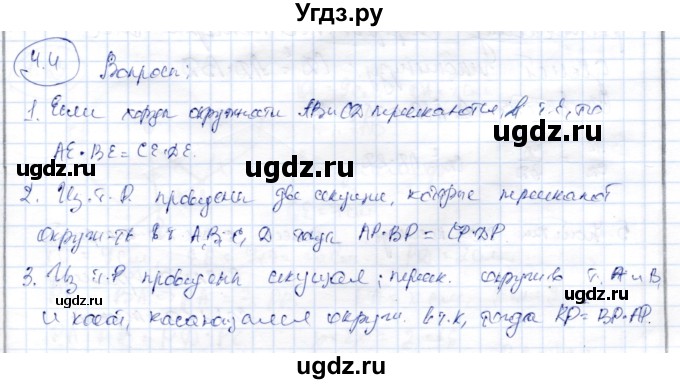 Угдз.ру
4.4 Вопросы:
1. Если хорды окружности AB и CD пересекаются в т. E, то
AE · BE = CE · DE.
ugdz.ru ugdz.ru
ugdz.ru
2. Из т. P. проведены две секущие, которые пересекают
окружн-ть в т A, B, C, D тогда AP · BP = CP · DP
ugdz.ru
3. Из т. P проведены секущая, перес. окружн в т. A и B
ugdz.ru ugdz.ru
и касат, касающаяся окружн. в т. K, тогда KP = BP · AP.
ugdz.ru